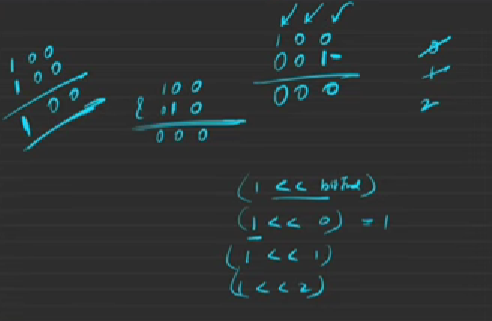 100
100
100
& 010
100
000
100
001
000
0
1
2
(1 << bitInd)
(1 << 0) = 1
(1 << 1)
(1 << 2)